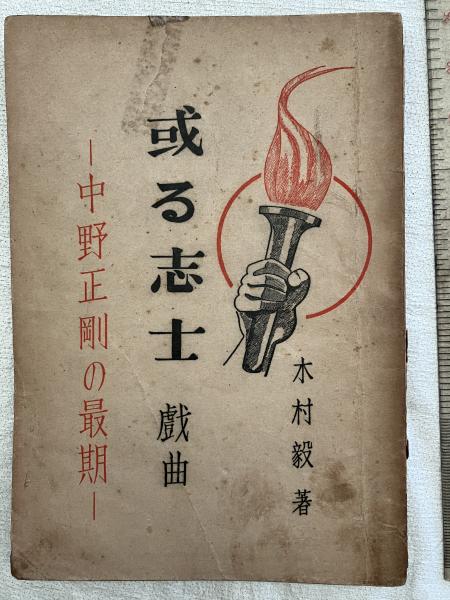 或る志士 戯曲
―中野正剛の最期―
木村毅 著